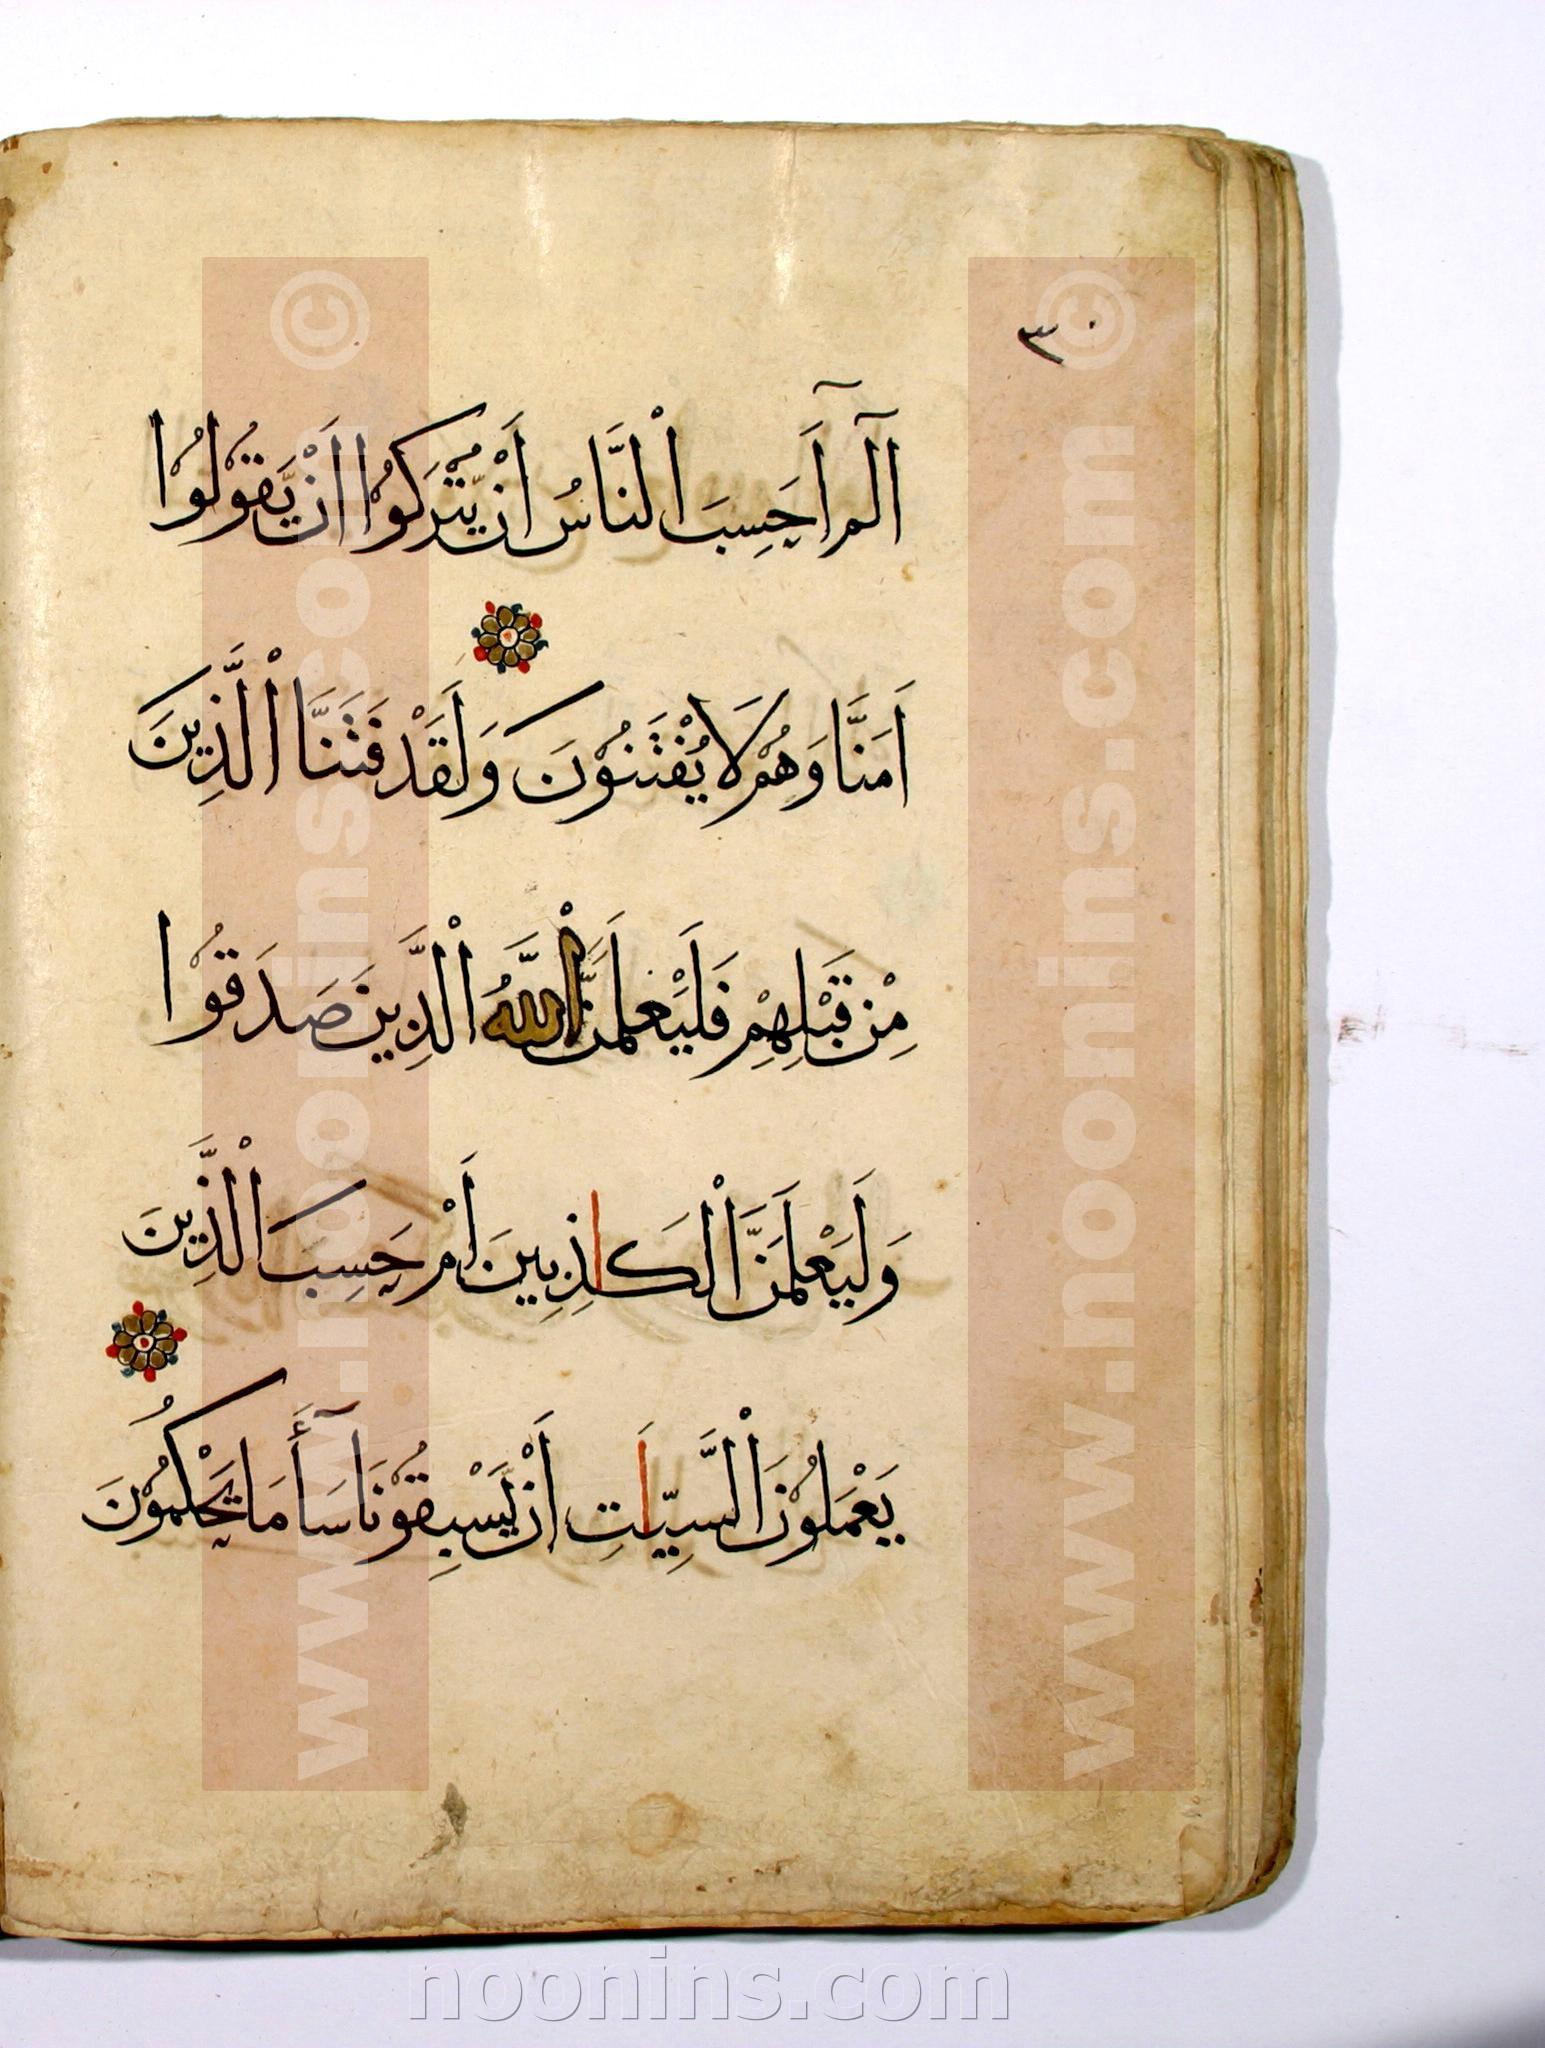 ٣٠
الٓمٓ اَحَسِبَ الْنَّاسُ اَنْ يُّتْرَكُوْا اَنْ يَّقُوْلُوْا
اَمَنَّا وَهُمْ لَا يُفْتَنُوْنَ وَلَقَدْ فَتَنَّا الْلَّذِينَ
مِنْ قَبْلِهِمْ فَلَيَعْلَمَنَّ الْلَّهُ الْذَّيِنَ صَدَقُوْا
وَلَيَعْلَمَنَّ الْكَاذِبِينَ اَمْ حَسِبَ الْذَّيِنَ
يَعْمَلُوْنَ الْسَّيِّاَتِ اَنْ يَّسْبِقُوْنَا سَآأَ مَا يَحْكُمُوْنَ
www.noonins.com ©
www.noonins.com ©
noonins.com